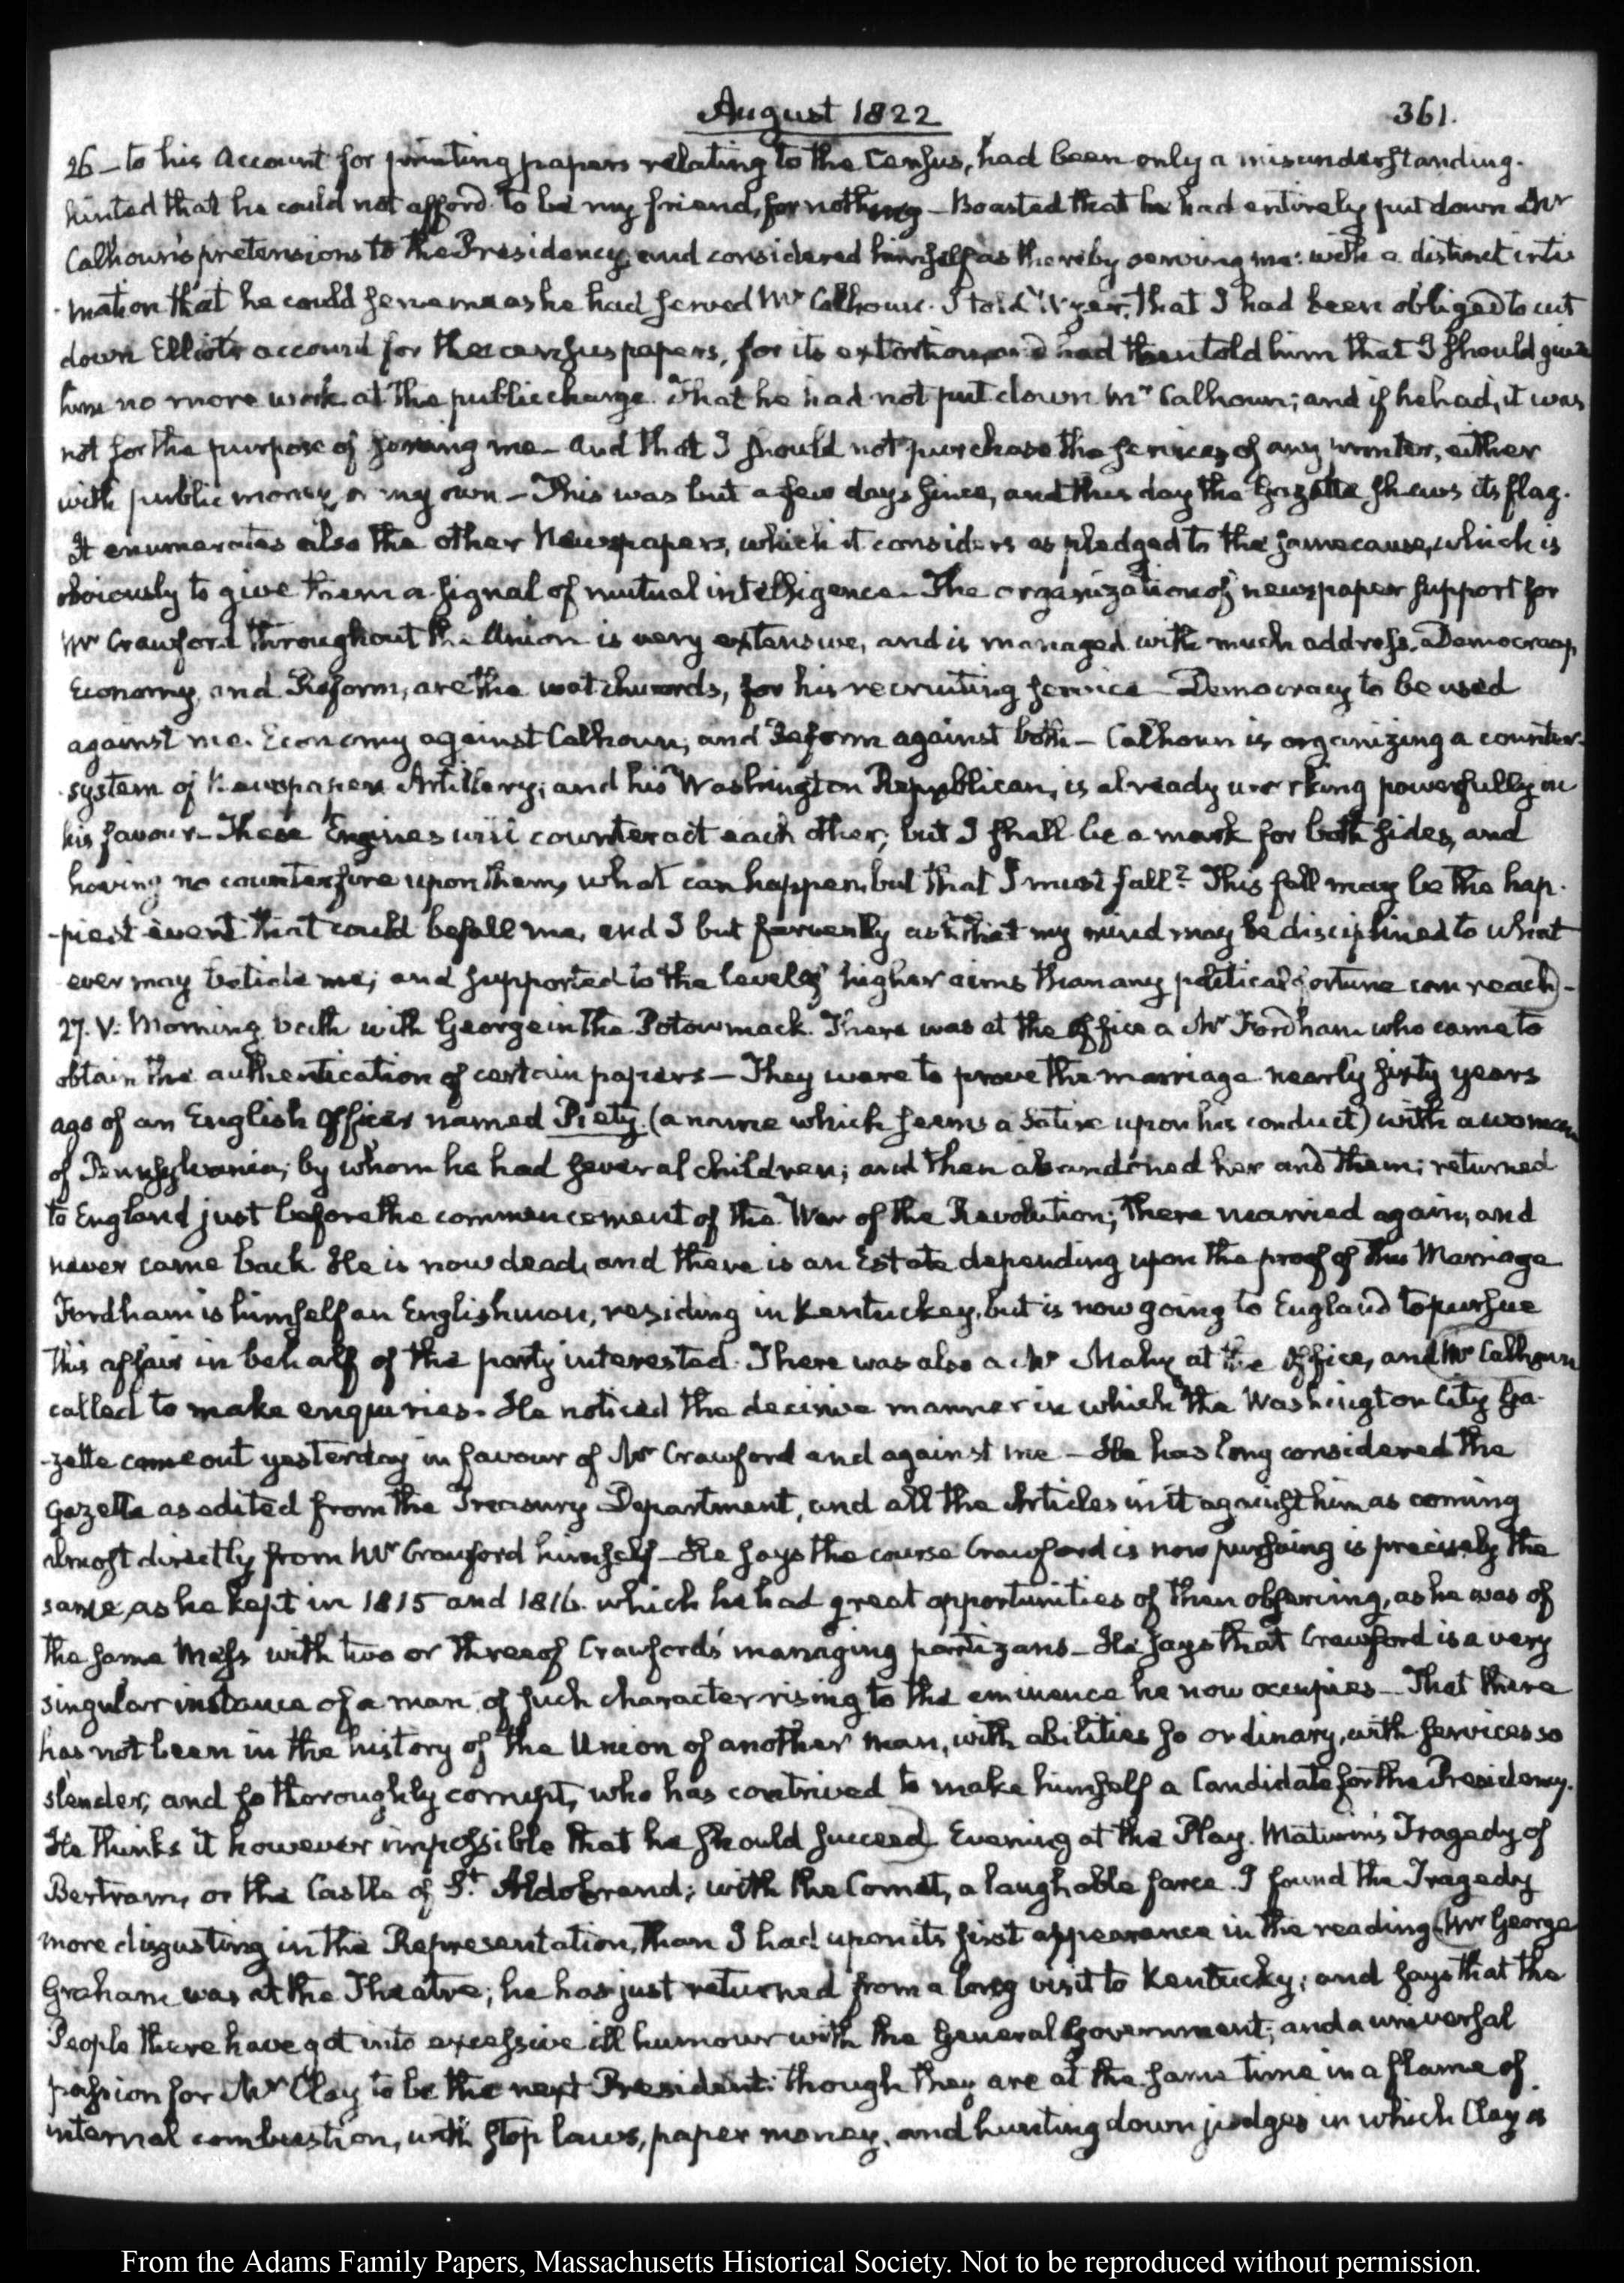 August 1822
361.
26 – to his Account for printing papers relating to the Census, had been only a misunderstanding.
hinted that he could not afford to be my friend, for nothing – Boasted that he had entirely put down Mr
Calhoun's pretensions to the Presidency, and considered himself as thereby serving me: with a distinct inti-
mation that he could serve me as he had served Mr Calhoun. I told that I had been obliged to cut
down Elliot's account for the census papers, for its extortion, and had then told him that I should give
him no more work at the public charge. That he had not put down Mr Calhoun; and if he had, it was
not for the purpose of serving me – and that I should not purchase the services of any printer, either
with public money, or my own – This was but a few days since, and this day the Gazette shews its flag.
It enumerates also the other Newspapers, which it considers as pledged to the same cause, which is
obviously to give them a signal of mutual intelligence. The organization of newspaper support for
Mr Crawford throughout the Union is very extensive, and is managed with much address. Democracy,
Economy, and Reform, are the watchwords, for his recruiting service – Democracy to be used
against me. Economy against Calhoun, and Reform against both – Calhoun is organizing a counter-
system of Newspaper Artillery; and his Washington Republican, is already working powerfully in
his favour – These Engines will counteract each other; but I shall be a mark for both sides, and
having no counter-fire upon them, what can happen, but that I must fall? This fall may be the hap-
-piest event that could befall me, and I but fervently ask that my mind may be disciplined to what
ever may betide me; and supported to the level of higher aims than any political fortune can reach) –
27. V: Morning bath with George in the Potowmack. There was at the Office a Mr Fordham who came to
obtain the authentication of certain papers – They were to prove the marriage nearly sixty years
ago of an English Officer named Piety (a name which seems a Satire upon his conduct) with a woman
of Pennsylvania; by whom he had several children; and then abandoned her and them; returned
to England just before the commencement of the War of the Revolution; there married again, and
never came back. He is now dead, and there is an Estate depending upon the proof of this Marriage
Fordham is himself an Englishman, residing in Kentuckey, but is now going to England to pursue
this affair in behalf of the party interested. There was also a Mr at the Office, and (Mr Calhoun
called to make enquiries. He noticed the decisive manner in which the Washington City Ga-
-zette came out yesterday in favour of Mr Crawford and against me – He has long considered the
Gazette as edited from the Treasury Department, and all the Articles in it against him as coming
almost directly from Mr Crawford himself – He says the course Crawford is now pursuing is precisely the
same, as he kept in 1815 and 1816. which he had great opportunities of then observing, as he was of
the same Mess with two or three of Crawford's managing partizans – He says that Crawford is a very
singular instance of a man of such character rising to the eminence he now occupies – That there
has not been in the history of the Union of another man, with abilities so ordinary, with services so
slender, and so thoroughly corrupt, who has contrived to make himself a Candidate for the Presidency.
He thinks it however impossible that he should succeed) Evening at the Play. Maturin's Tragedy of
Bertram, or the Castle of St Aldobrand; with the Comet, a laughable farce. I found the Tragedy
more disgusting in the Representation, than I had upon its first appearance in the reading (Mr George
Graham was at the Theatre; he has just returned from a long visit to Kentucky; and says that the
People there have got into excessive ill humour with the General Government; and a universal
passion for Mr Clay to be the next President: though they are at the same time in a flame of
internal combustion, with stop laws, paper money, and hunting down judges in which Clay is
From the Adams Family Papers, Massachusetts Historical Society. Not to be reproduced without permission.